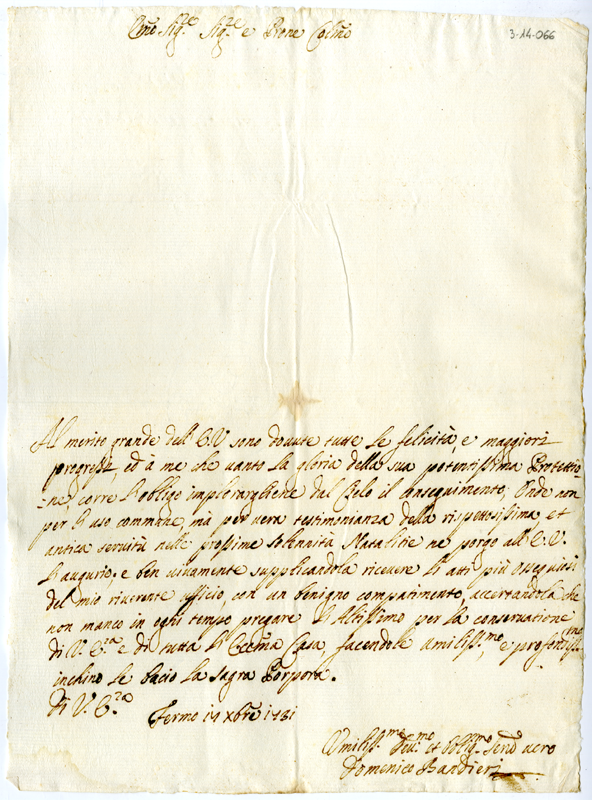 3-14-066
Em̃o Sig.re Sig.re e Pñone Colm̃o
Al merito grande dell' E.V. sono dovute tutte le felicità, e maggiori
progressi, ed à me che vanto la gloria della sua potentissima Protettio-
-ne, corre l'obligo implorargliene dal Cielo il conseguimento; Onde non
per l'uso commune, mà per vera testimonianza della rispettosissima, et
antica servitù nelle prossime solennità Natalitie ne porgo all' E.V.
l'augurio: e ben vivamente supplicandola ricevere l'atti più ossequiosi
del mio riverente ufficio, con un benigno compatimento, accertandola che
non manco in ogni tempo pregare l'Altissimo per la conservatione
di V. E.za e di tutta l'Eccm̃a Casa, facendole umiliss.mo, e profondiss.mo
inchino le bacio la Sagra Porpora.
Di V. E.za
Fermo 14 Xbr̃e 1731
Umiliss.mo Dev.mo et Oblig.mo Serv̄o vero
Domenico Bandieri